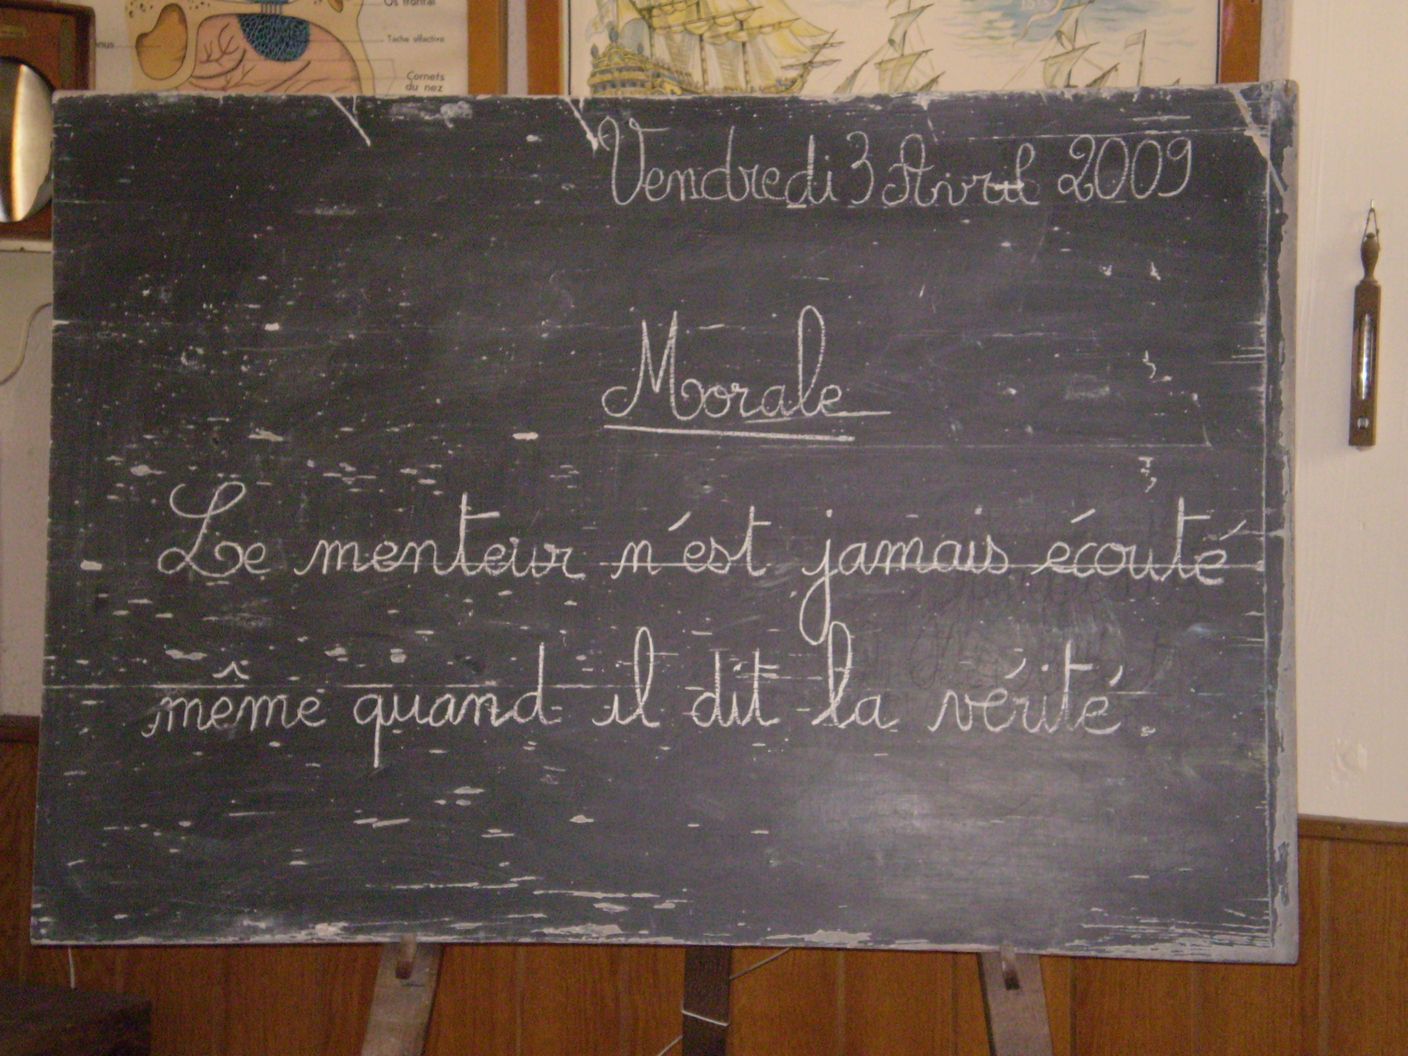 Os frontal
Tache olfactive
Cornets
du nez
Vendredi 3 Avril 2009
Morale
Le menteur n'est jamais écouté
même quand il dit la vérité.